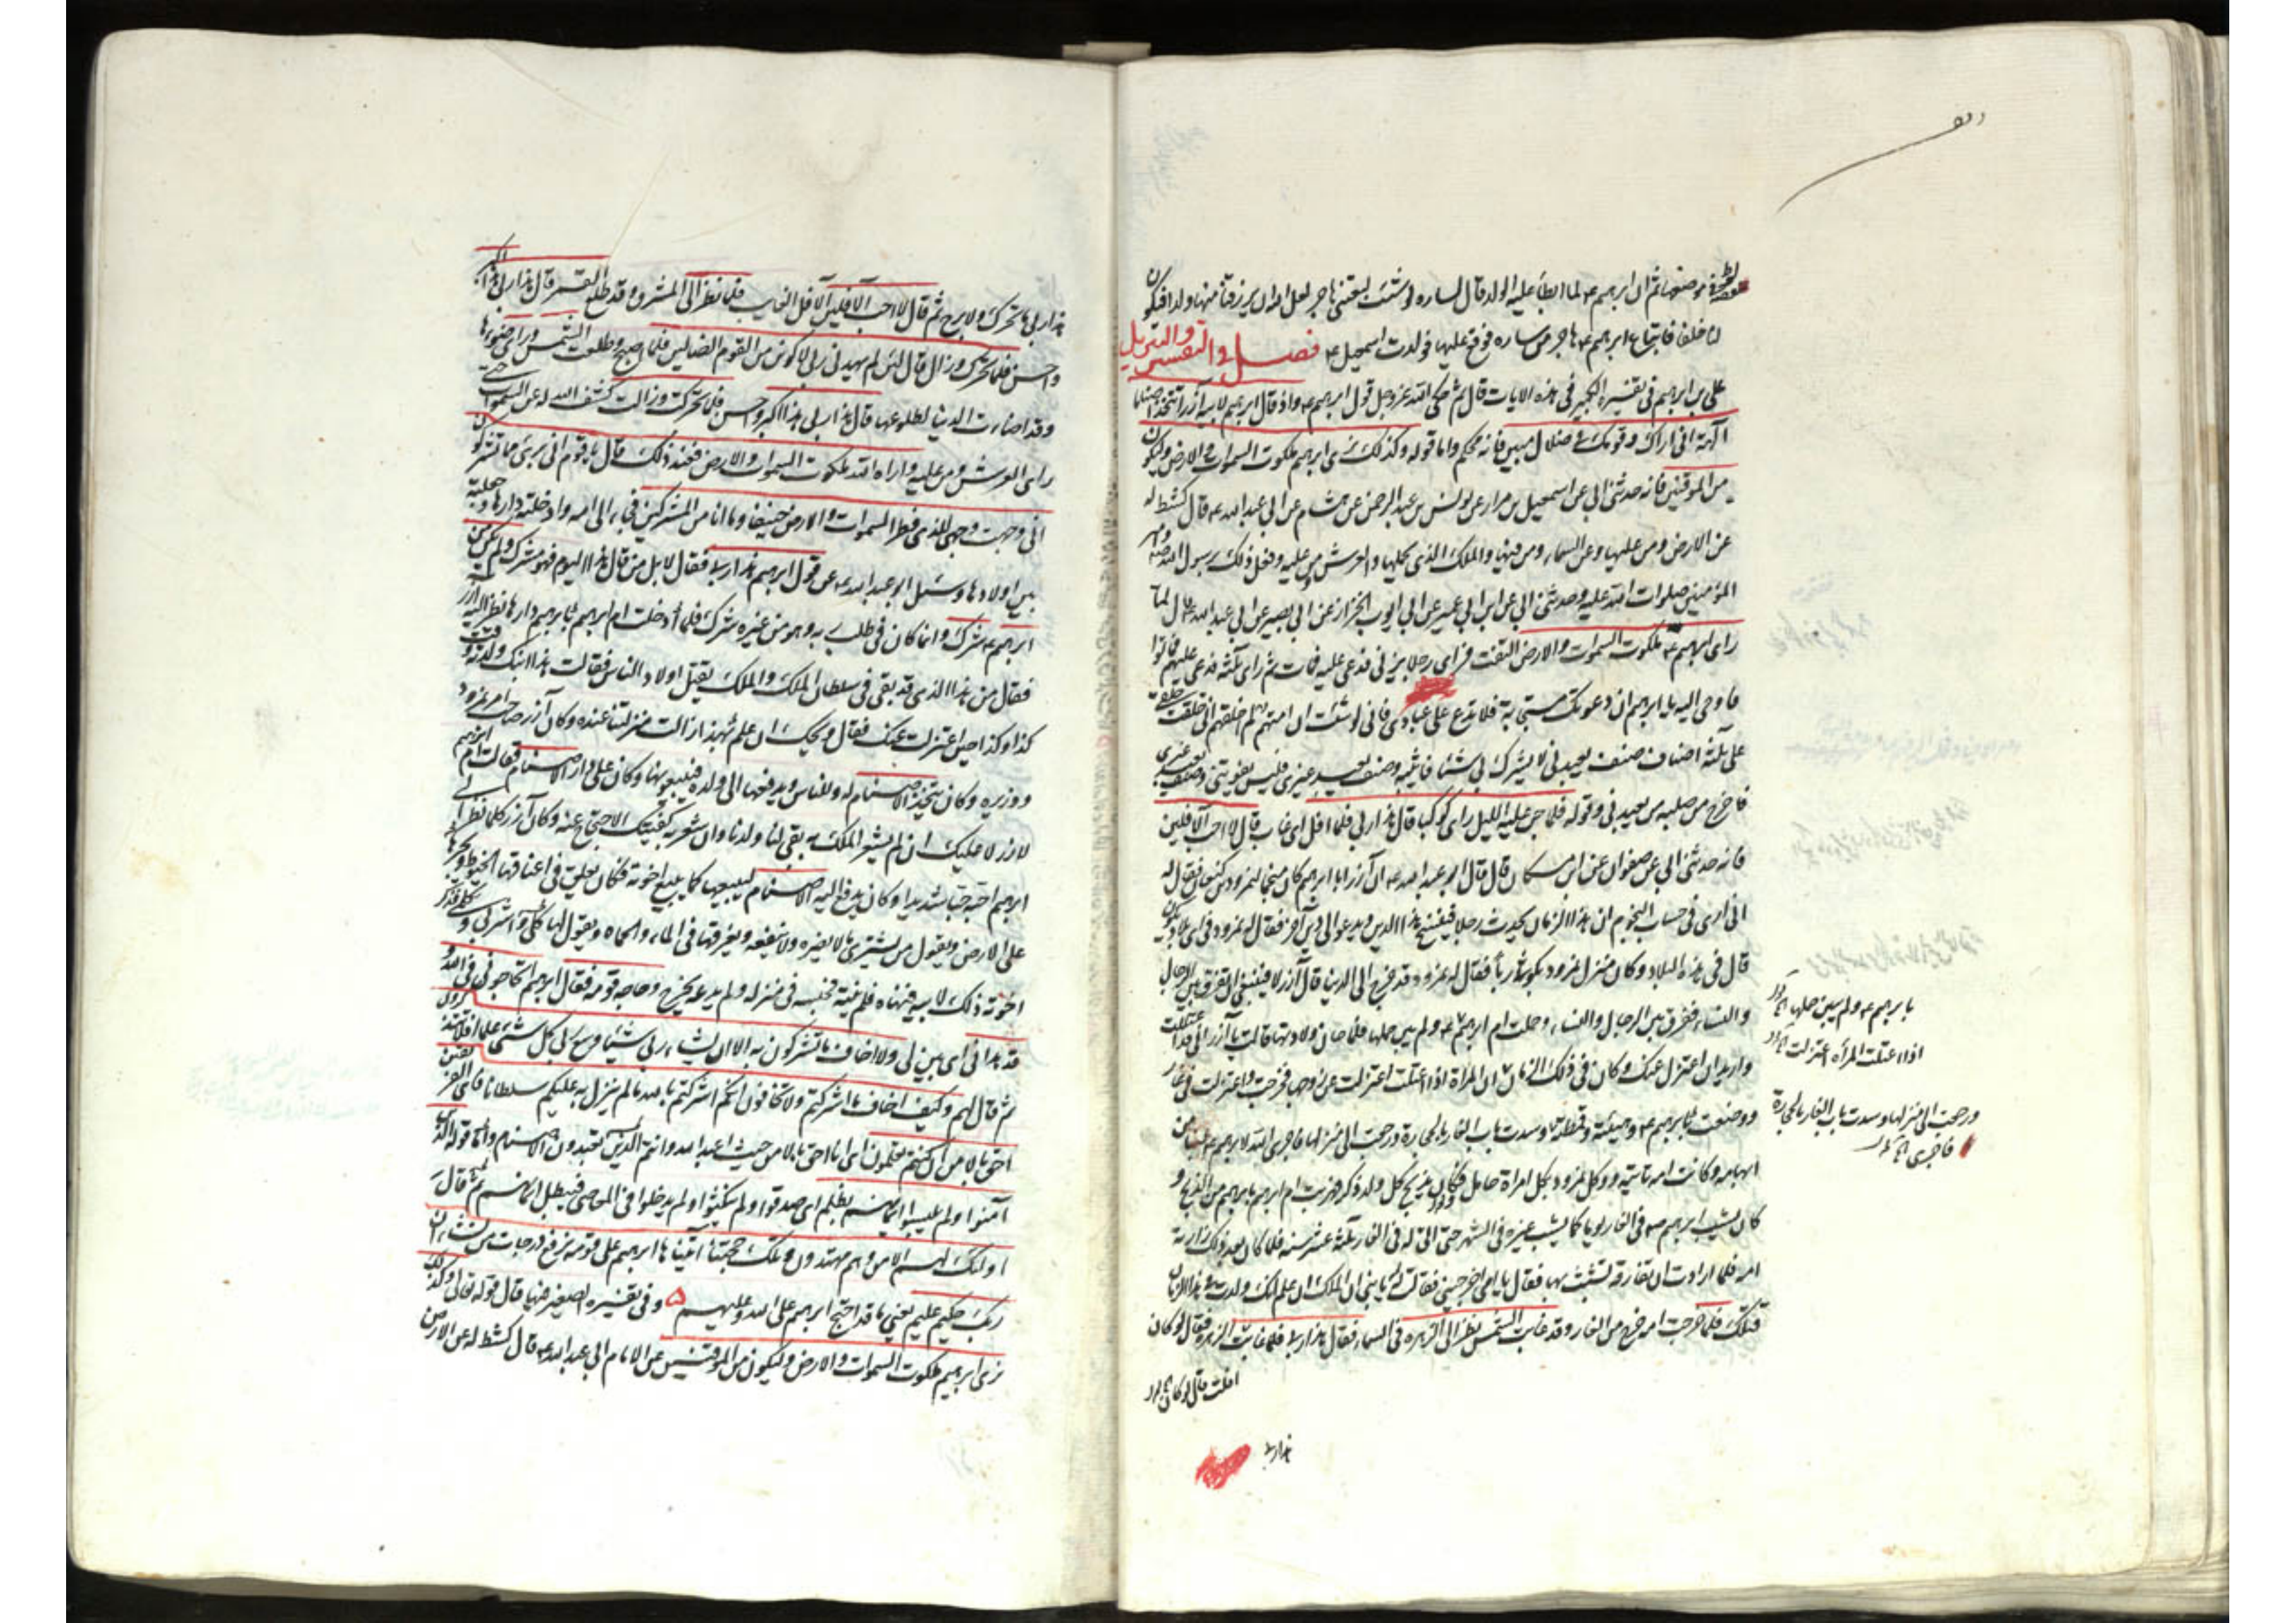 موضعها ثم ان ابرهيم ع لما ابطأ عليه الولد قال لساره لو شئت لبعتني هاجر لعل الله ان يرزقنا منها ولدا فيكون
لنا خلفا فابتاع ابرهيم ع هاجر من ساره فوقع عليها فولدت اسمعيل ع فصل في التفسير والتنزيل
علي بن ابرهيم في تفسيره الكبير في هذه الايات قال ثم حكى الله عز وجل قول ابرهيم ع واذ قال ابرهيم لابيه آزر أتتخذ اصناما
آلهة اني اراك وقومك في ضلال مبين فانه محكم واما قوله وكذلك نري ابرهيم ملكوت السموات والارض وليكون
من الموقنين فانه حدثني ابي عن اسمعيل بن مرار عن يونس بن عبد الرحمن عن هشام عن ابي عبد الله ع قال كشط له
عن الارض ومن عليها وعن السماء ومن فيها والملك الذي يحملها والعرش ومن عليه وفعل ذلك برسول الله ص وامير
المؤمنين صلوات الله عليه وحدثني ابي عن ابن ابي عمير عن ابي ايوب الخزاز عن ابي بصير عن ابي عبد الله ع قال لما
راى ابرهيم ع ملكوت السموات والارض التفت فراى رجلا يزني فدعى عليه فمات ثم راى ثلثة فدعى عليهم فماتوا
فاوحى اليه يا ابرهيم ان دعوتك مستجابة فلا تدع على عبادي فاني لو شئت ان اميتهم لم اخلقهم اني خلقت خلقي
على ثلثة اصناف صنف يعبدني لا يشرك بي شيئا فاثيبه وصنف يعبد غيري فليس يفوتني وصنف يعبد غيري
فاخرج من صلبه من يعبدني وقوله فلما جن عليه الليل راى كوكبا قال هذا ربي فلما افل اي غاب قال لا احب الآفلين
فانه حدثني ابي عن صفوان عن ابن مسكان قال قال ابو عبد الله ع ان آزر ابا ابرهيم كان منجما لنمرود بن كنعان فقال له
اني ارى في حساب النجوم ان هذا الزمان يحدث رجلا فينسخ هذا الدين ويدعو الى دين آخر فقال نمرود في اي بلاد يكون
قال في هذه البلاد وكان منزل نمرود بكوثى ربا فقال له نمرود قد خرج الى الدنيا قال آزر لا فينبغي ان نفرق بين الرجال
والنساء ففرق بين الرجال والنساء وحملت ام ابرهيم ع ولم يبين حملها فلما حان ولادتها قالت يا آزر اني قد اعتللت
واريد ان اعتزل عنك وكان في ذلك الزمان ان المراة اذا اعتلت اعتزلت عن زوجها فخرجت واعتزلت في غار
ووضعت بابرهيم ع وهيئته وقمطته وسدت باب الغار بالحجارة ورجعت الى منزلها فاجرى الله لابرهيم ع لبنا من
ابهامه وكانت امه تاتيه ووكل نمرود بكل امراة حامل فكان يذبح كل ولد ذكر فهربت ام ابرهيم بابرهيم من الذبح و
كان يشب ابرهيم ع في الغار يوما كما يشب غيره في الشهر حتى اتى له في الغار ثلثة عشر سنه فلما كان بعد ذلك زارته
امه فلما ارادت ان تفارقه تشبث بها فقال يا امي اخرجيني فقالت له يا بني ان الملك ان علم انك ولدت في هذا الزمان
قتلك فلما خرجت امه خرج من الغار وقد غابت الشمس نظر الى الزهره في السماء فقال هذا ربي فلما غابت الزهره فقال لو كان
بابرهيم ع ولم يبين حملها
اذا اعتلت المراه اعتزلت
ورجعت الى منزلها وسدت باب الغار بالحجارة
فاجرى
افلت قال لو كان
هذا ربي
هذا ربي ما تحرك ولا برح ثم قال لا احب الآفلين الآفل الغايب فلما نظر الى المشرق وقد طلع القمر قال هذا ربي هذا اكبر
واحسن فلما تحرك وزال قال لئن لم يهدني ربي لاكونن من القوم الضالين فلما اصبح وطلعت الشمس وراى ضوءها
وقد اضاءت الدنيا لطلوعها قال هذا ربي هذا اكبر واحسن فلما تحركت وزالت كشف الله له عن السموات حتى
راى العرش ومن عليه واراه الله ملكوت السموات والارض فعند ذلك قال يا قوم اني بريء مما تشركون
اني وجهت وجهي للذي فطر السموات والارض حنيفا وما انا من المشركين فجاء الى امه وادخلته دارها وجعلته
بين اولادها وسئل ابو عبد الله ع عن قول ابرهيم هذا ربي فقال لا بل من قال هذا اليوم فهو مشرك ولم يكن من
ابرهيم ع شرك وانما كان في طلب ربه وهو من غيره شرك فلما أدخلت ام ابرهيم بابرهيم دارها نظر اليه آزر
فقال من هذا الذي قد بقي في سلطان الملك والملك يقتل اولاد الناس فقالت هذا ابنك ولدته وقت
كذا وكذا حين اعتزلت عنك فقال ويحك ان علم الملك بهذا زالت منزلتنا عنده وكان آزر صاحب امر نمرود
ووزيره وكان يتخذ الاصنام له وللناس ويدفعها الى ولده فيبيعونها وكان على دار الاصنام فقالت ام ابرهيم
لازر لا عليك ان لم يشعر الملك به بقي لنا ولدنا وان شعر به كفيتك الاحتجاج عنه وكان آزر كلما نظر الى
ابرهيم احبه حبا شديدا وكان يدفع اليه الاصنام ليبيعها كما يبيع اخوته فكان يعلق في اعناقها الخيوط ويجرها
على الارض ويقول من يشتري ما لا يضره ولا ينفعه ويغرقها في الماء والحماه ويقول لها كلي واشربي وتكلمي فذكر
اخوته ذلك لابيه فنهاه فلم ينته فحبسه في منزله ولم يدعه يخرج وحاجه قومه فقال ابرهيم اتحاجوني في الله و
قد هداني اي بين لي ولا اخاف ما تشركون به الا ان يشاء ربي شيئا وسع ربي كل شيء علما افلا تتذكرون
ثم قال لهم وكيف اخاف ما اشركتم ولا تخافون انكم اشركتم بالله ما لم ينزل به عليكم سلطانا فاي الفريقين
احق بالامن ان كنتم تعلمون اي انا احق بالامن حيث اعبد الله وانتم الذين تعبدون الاصنام واما قوله الذين
آمنوا ولم يلبسوا ايمانهم بظلم اي صدقوا ولم ينكثوا ولم يدخلوا في المعاصي فيبطل ايمانهم ثم قال
اولئك لهم الامن وهم مهتدون وتلك حجتنا آتيناها ابرهيم على قومه نرفع درجات من نشاء ان
ربك حكيم عليم يعني ما قد احتج ابرهيم على الله وعليهم ه وفي تفسيره الصغير منها قال قوله تعالى وكذلك
نري ابرهيم ملكوت السموات والارض وليكون من الموقنين عن الامام ابي عبد الله ع قال كشط له عن الارض